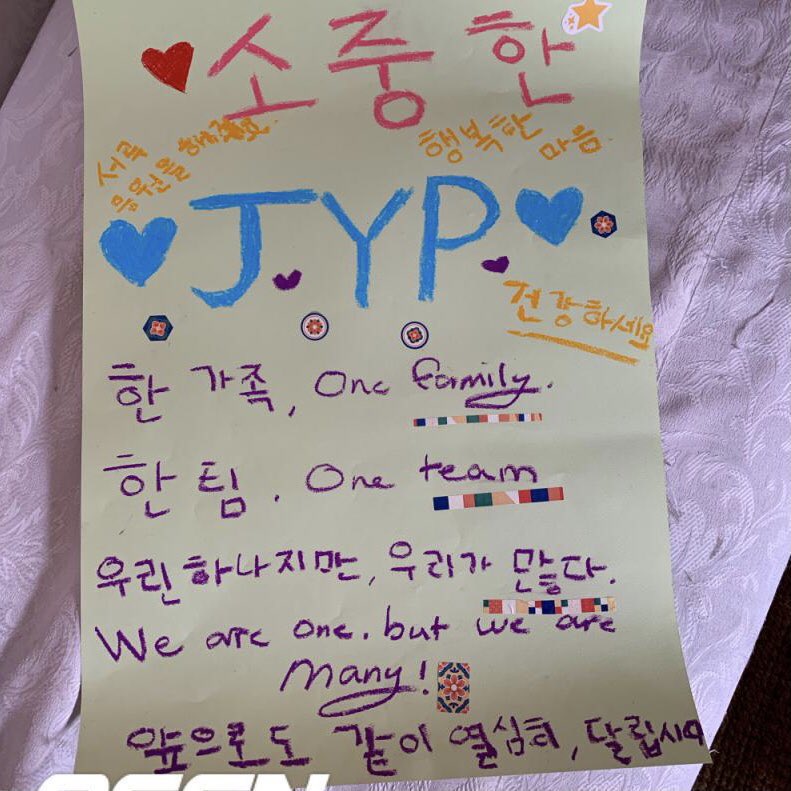 소중한
서로
응원을
행복한 마음
J.Y.P.
건강하세요
한 가족, One family.
한 팀. One team
우린 하나지만, 우리가 많다.
We are one. but we are
Many!
앞으로도 같이 열심히, 달립시다